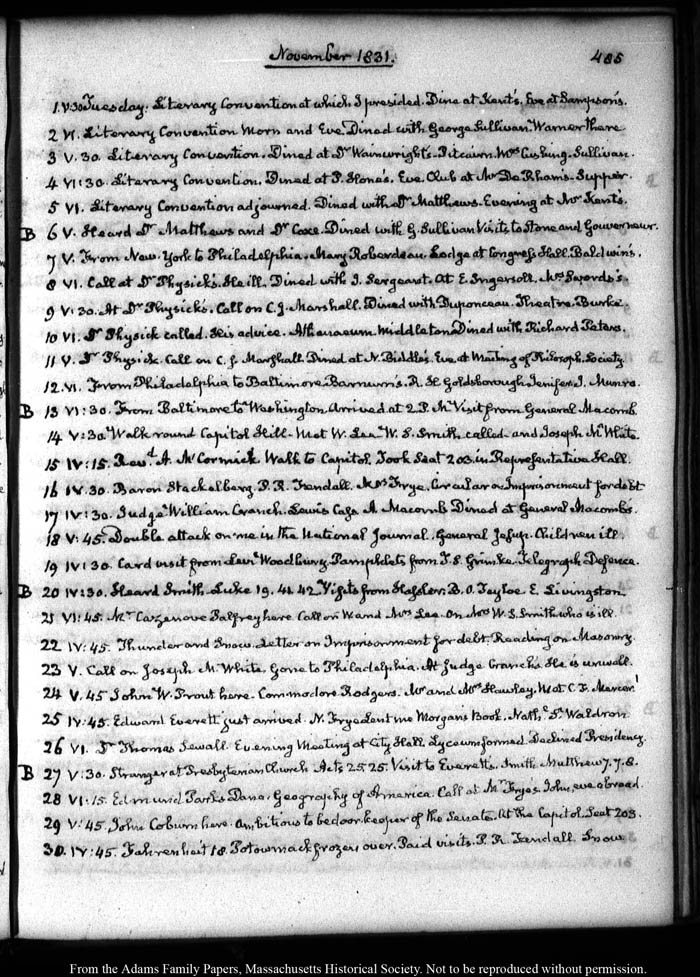 November 1831.
485
1. V:30 Tuesday. Literary Convention at which I presided. Dine at Kent's, Eve at Sampson's.
2 VI. Literary Convention Morn and Eve. Dined with George Sullivan. Warner there
3 V. 30. Literary Convention. Dined at Dr Wainwright's. Pitcairn. Mrs Cushing. Sullivan.
4 VI:30. Literary Convention. Dined at P. Hone's. Eve. Club at Mr De Rham's. Supper.
5 VI. Literary Convention adjourned. Dined with Dr Matthews. Evening at Mr Kent's.
B 6 V. Heard Dr Matthews and Dr Coxe. Dined with G. Sullivan Visits to Stone and Gouverneur.
7 V. From New York to Philadelphia. Mary Roberdeau. Lodge at Congress Hall. Baldwin's.
8 VI. Call at Dr Physick's. He ill. Dined with J. Sergeant. At E. Ingersoll. Mrs Swords's.
9 V:30. At Dr Physick's. Call on C. J. Marshall. Dined with Duponceau. Theatre. Burke.
10 VI. Dr Physick called. His advice. Athenaeum Middleton Dined with Richard Peters.
11 V. Dr Physick. Call on C. J. Marshall. Dined at N. Biddle's. Eve at Meeting of Philosoph. Society
12. VI. From Philadelphia to Baltimore. Barnum's. R. H. Goldsborough Jenifer. J. Munro.
B 13 VI:30. From Baltimore to Washington. Arrived at 2 P. M. Visit from General Macomb.
14 V:30 Walk round Capitol Hill. Met W. Lee. W. S. Smith called. and Joseph M. White.
15 IV:15. Revd. A. McCormick Walk to Capitol. Took Seat 203. in Representative Hall.
16 IV.30. Baron Stackelberg. P. R. Fendall. Mrs Frye. Circular on Imprisonment for debt
17 IV:30. Judge William Cranch. Lewis Cass. A Macomb Dined at General Macombs.
18 V:45. Double attack on me in the National Journal. General Jesup. Children ill.
19 IV:30. Card visit from Levi Woodbury. Pamphlets from T. S. Grimke. Telegraph Defence.
B 20 IV:30. Heard Smith. Luke 19. 41. 42. Visits from Hassler. B. O. Tayloe. E. Livingston.
21 VI:45. Mr Cazenove Palfrey here. Call on W and Mrs Lee. On Mrs W. S. Smith who is ill.
22 IV:45. Thunder and Snow. Letter on Imprisonment for debt. Reading on Masonry.
23 V. Call on Joseph M. White. Gone to Philadelphia. At Judge Cranch's. He is unwell.
24 V. 45 John W. Prout here. Commodore Rodgers. Mr and Mrs Hawley. Met C. F. Mercer
25 IV:45. Edward Everett just arrived. N. Frye Lent me Morgan's Book. Nathl. S. Waldron.
26 VI. Dr Thomas Sewall. Evening Meeting at City Hall. Lyceum formed. Declined Presidency.
B 27 V:30. Stranger at Presbyterian Church Acts 25 25. Visit to Everetts. Smith. Matthew 7. 7. 8.
28 VI:15. Edmund Parks Dana. Geography of America. Call at Mr Frye's. John, eve abroad.
29 V:45. John Coburn here. Ambitious to be doorkeeper of the Senate. At the Capitol. Seat 203.
30. IV:45. Fahrenheit 18. Potowmack frozen over. Paid visits. P. R. Fendall. Snow
From the Adams Family Papers, Massachusetts Historical Society. Not to be reproduced without permission.